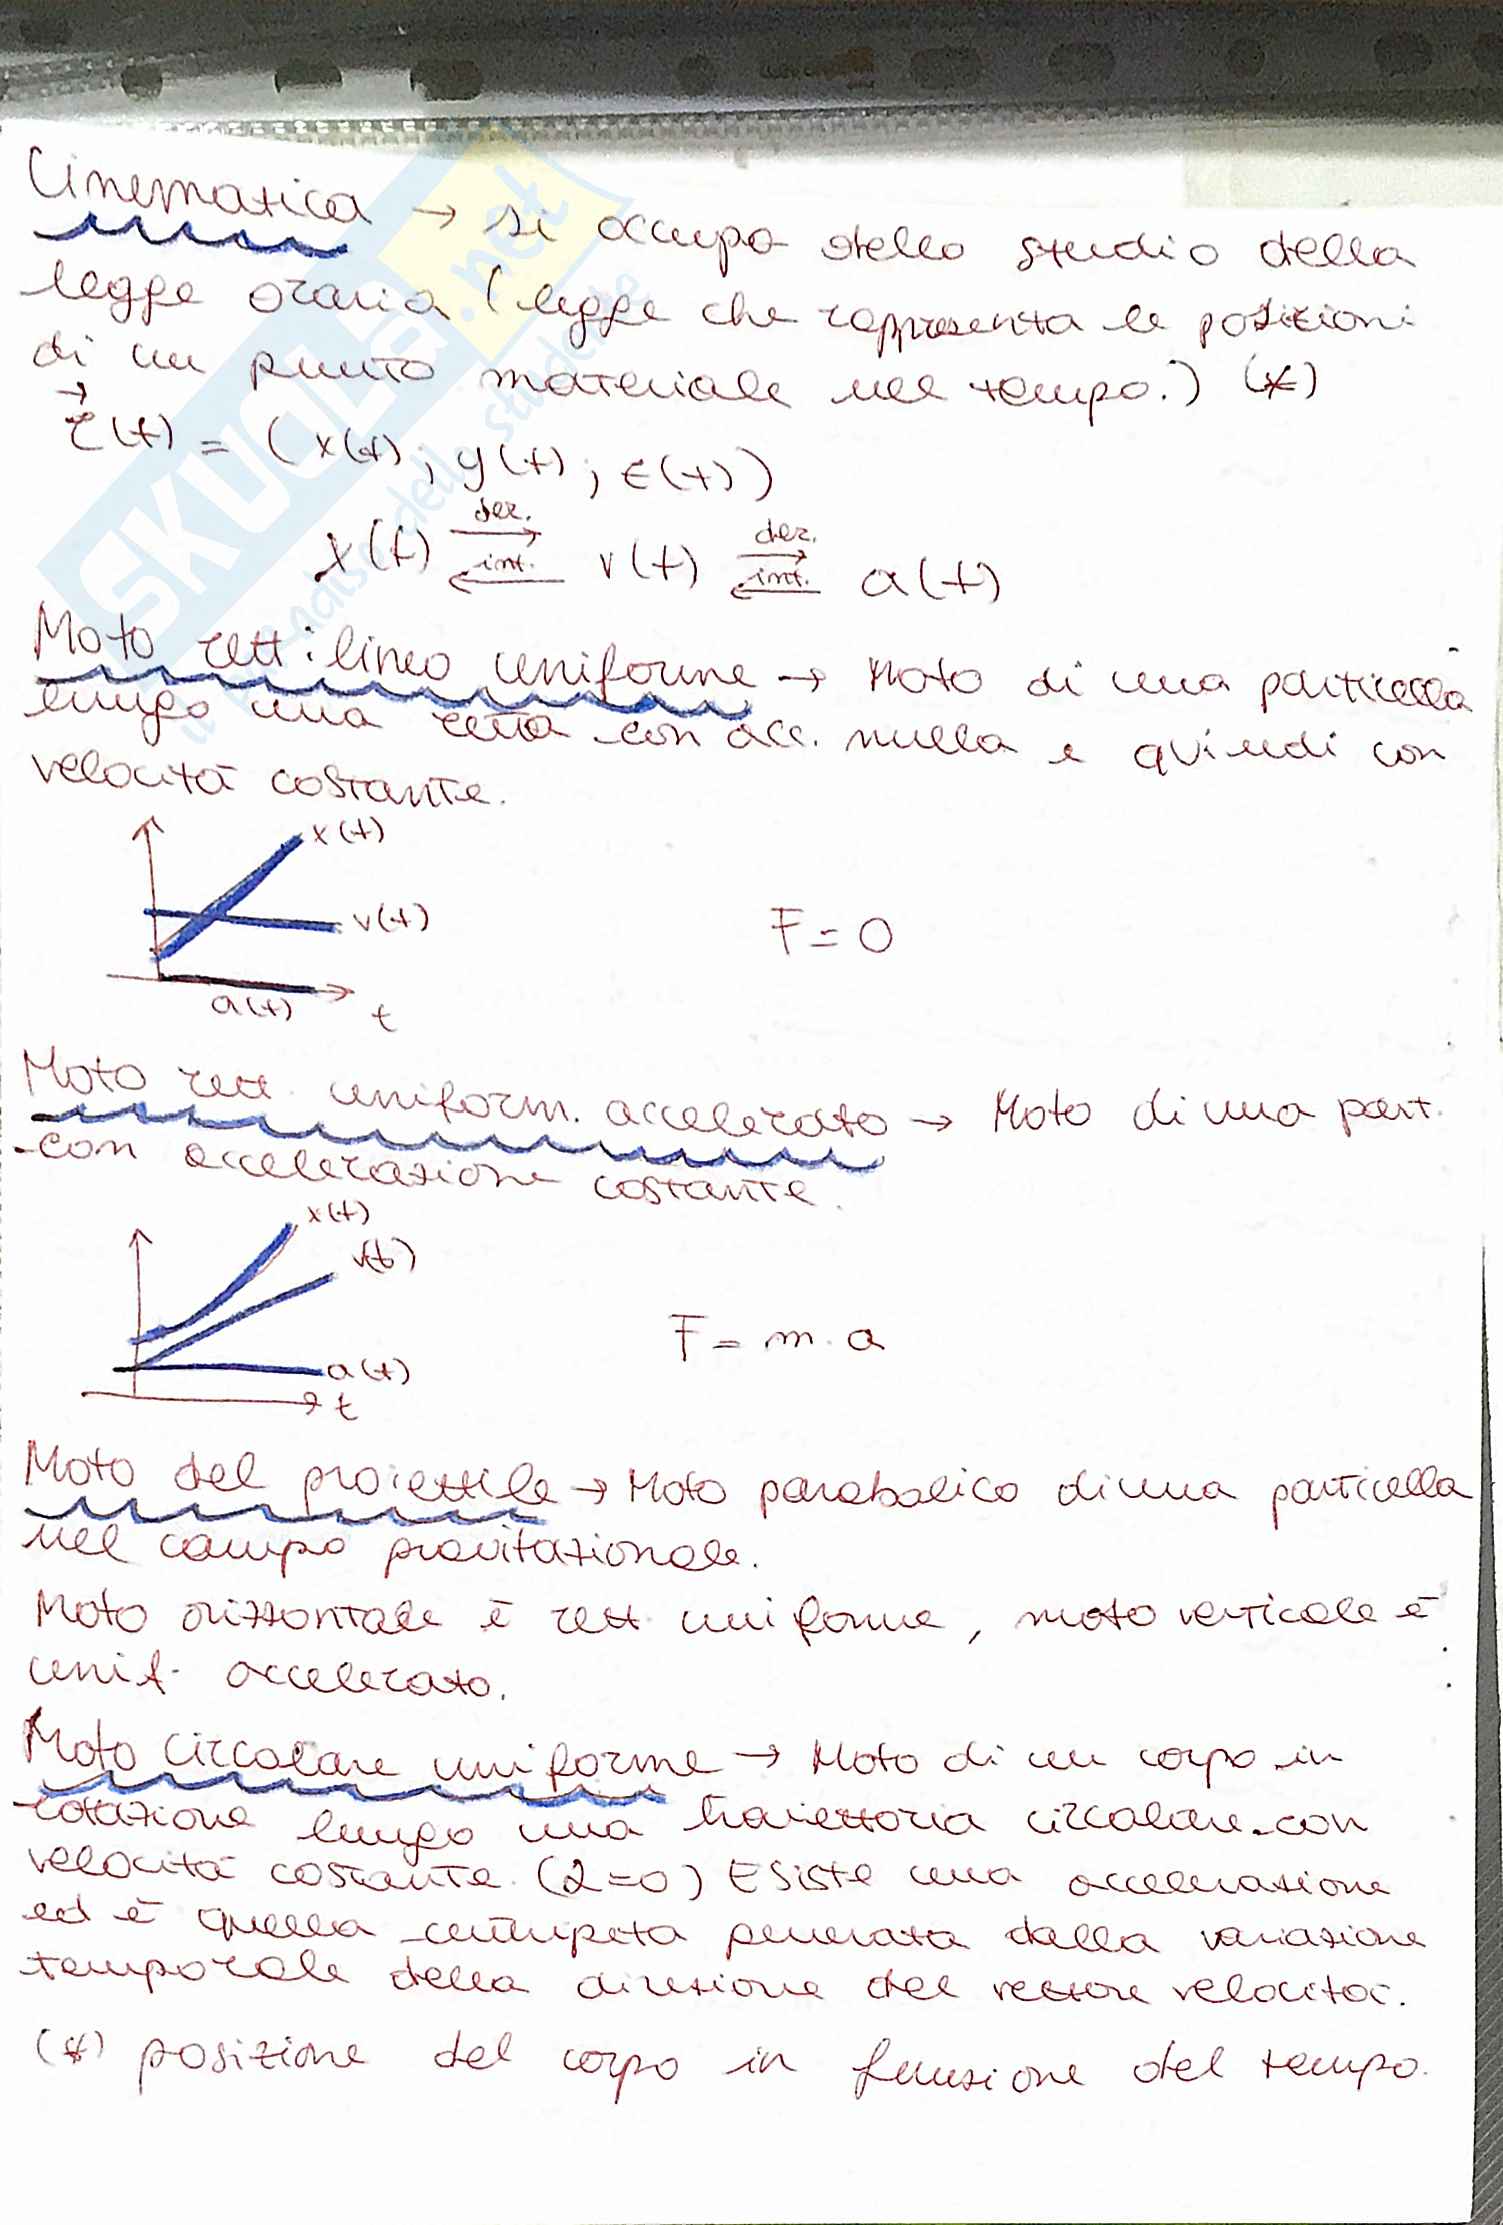 Cinematica → si occupa dello studio della
legge oraria (legge che rappresenta le posizioni
di un punto materiale nel tempo.) (*)
r(t) = (x(t); y(t); z(t))
x(t) der. int. v(t) der. int. a(t)
Moto rettilineo uniforme → Moto di una particella
lungo una retta con acc. nulla e quindi con
velocità costante.
x(t)
v(t)
F = 0
a(t) t
Moto rett. uniform. accelerato → Moto di una part.
con accelerazione costante.
x(t)
v(t)
F = m·a
a(t)
t
Moto del proiettile → Moto parabolico di una particella
nel campo gravitazionale.
Moto orizzontale è rett. uniforme, moto verticale è
unif. accelerato.
Moto circolare uniforme → Moto di un corpo in
rotazione lungo una traiettoria circolare con
velocità costante. (α=0) Esiste una accelerazione
ed è quella centripeta generata dalla variazione
temporale della direzione del vettore velocità.
(*) posizione del corpo in funzione del tempo.
SKUOLA.net
il paradiso dello studente